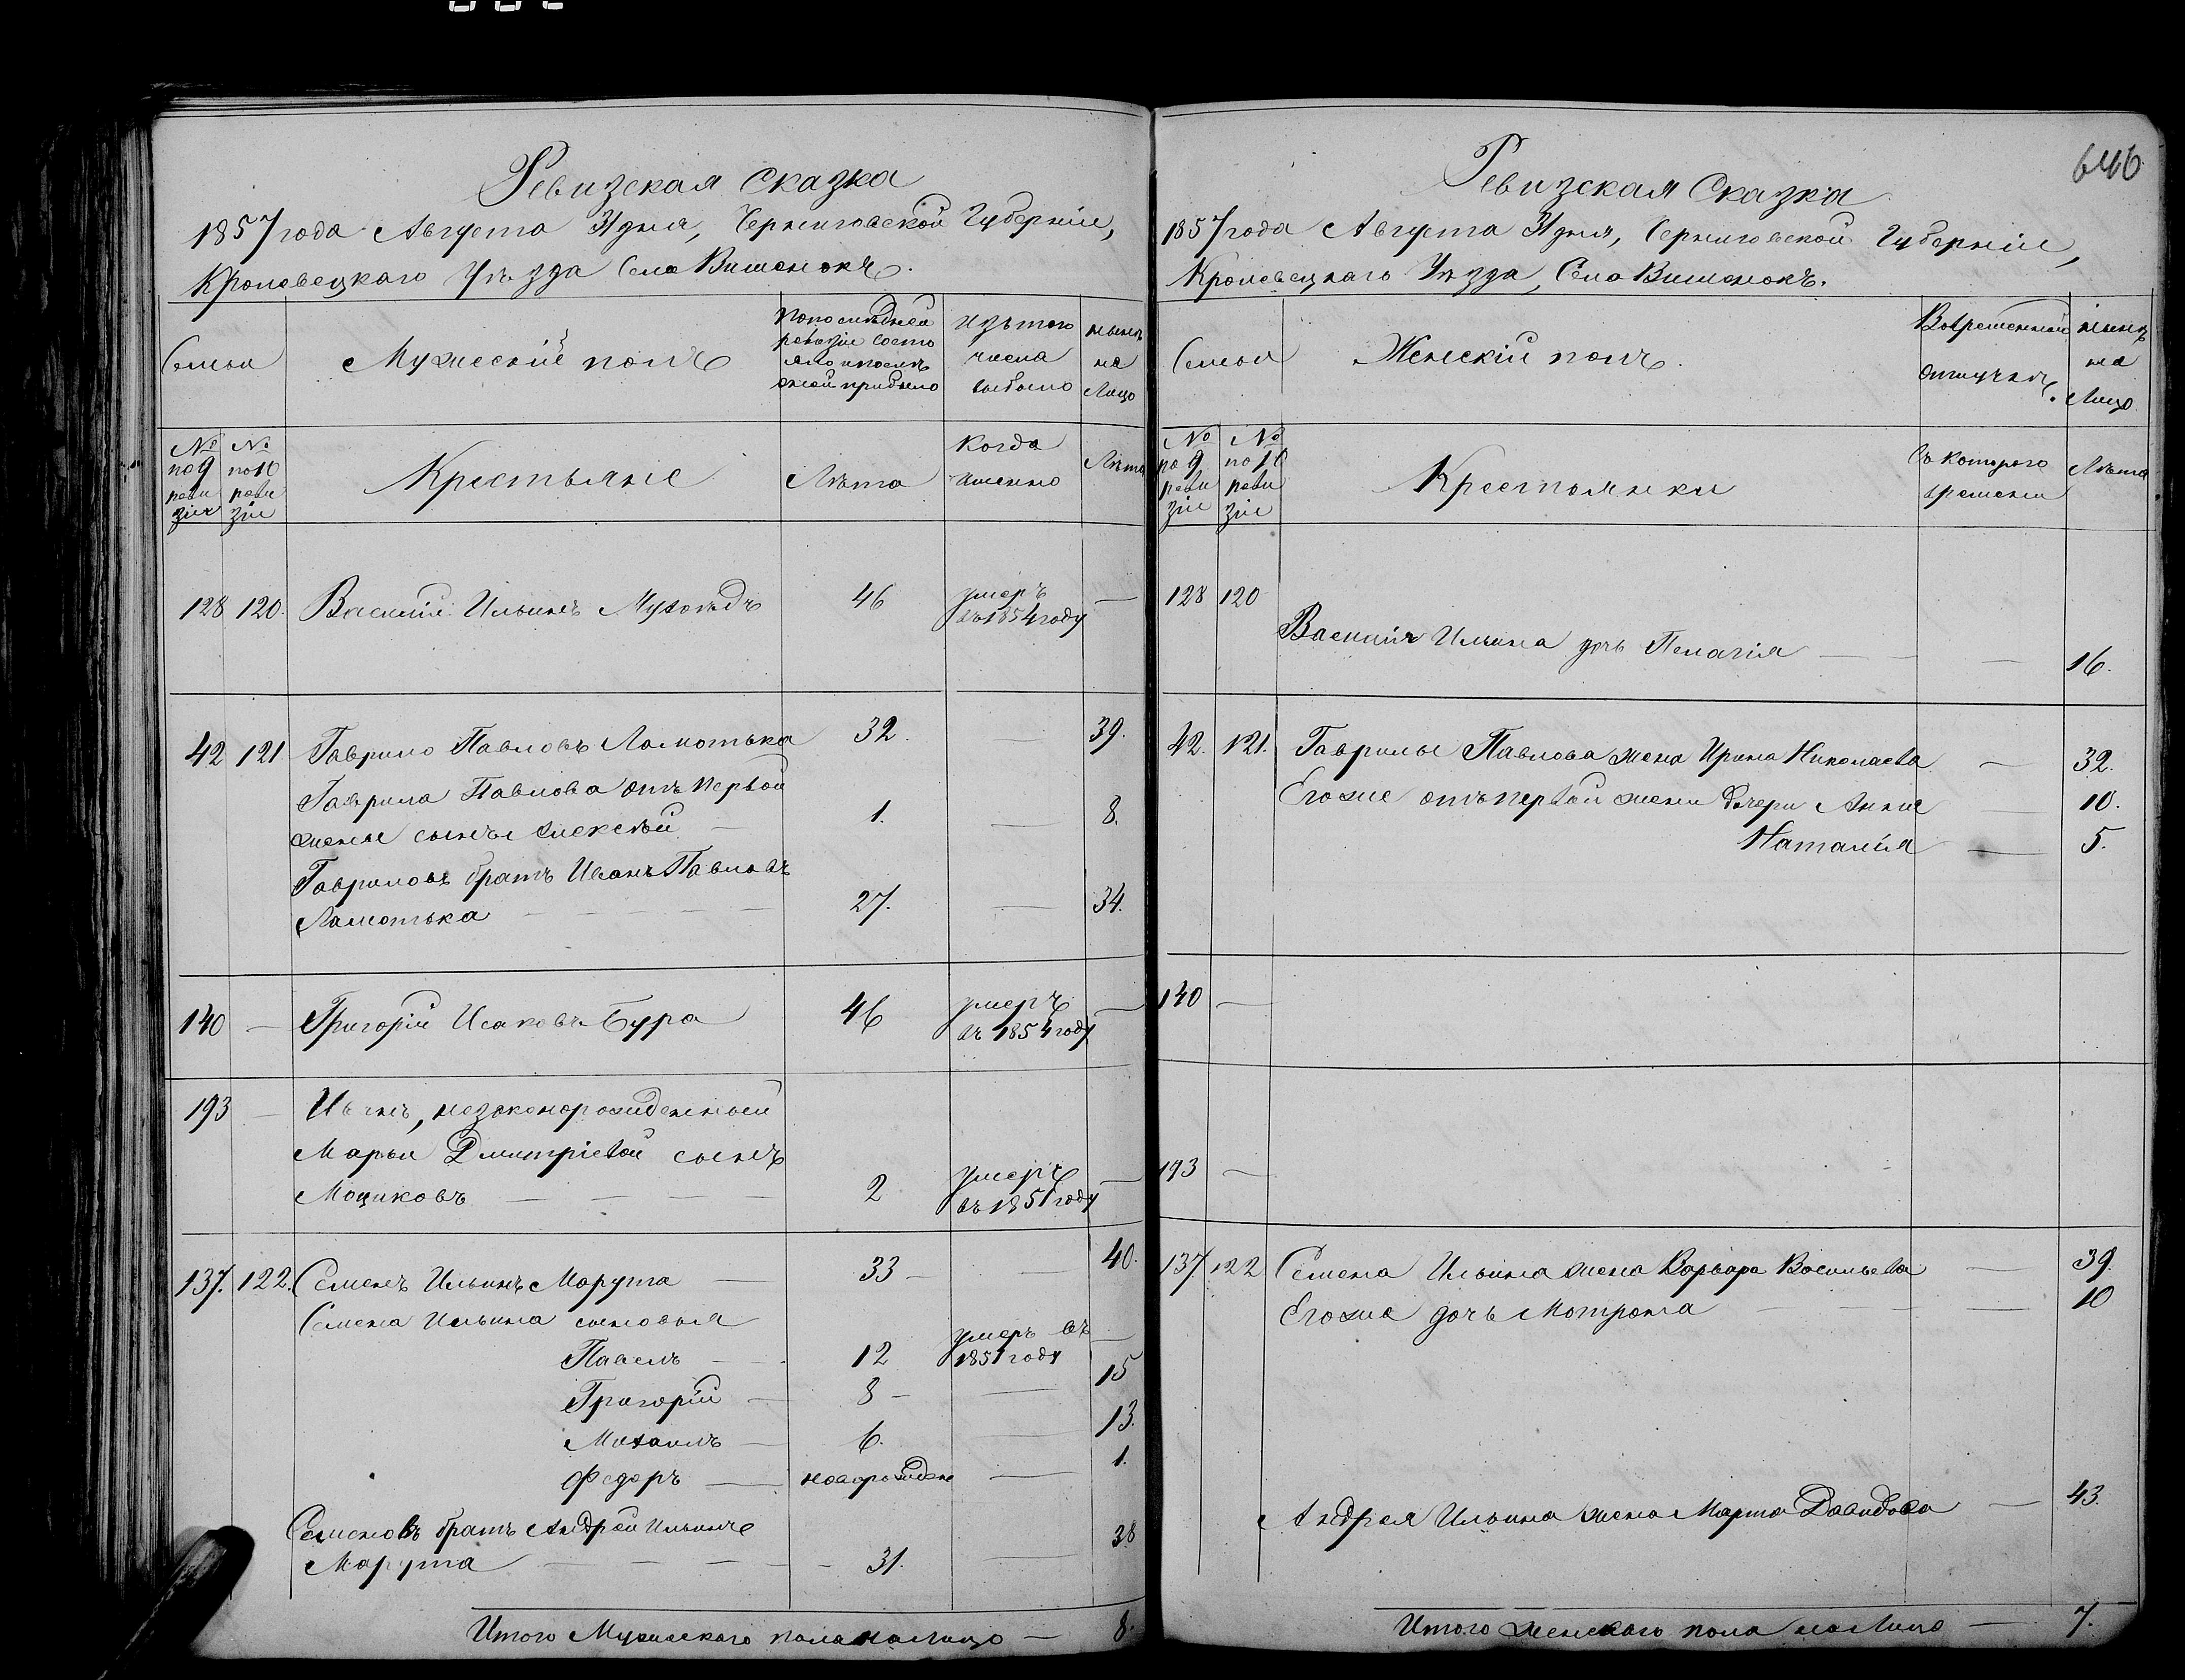 Ревизская Сказка
1857 года Августа 31 дня, Черниговской Губерніи,
Кролевецкаго Уѣзда Села Вишенокъ.
Семьи
Мужескій полъ
По последней
ревизіи состо
яло и после
оной прибыло
Изъ того
числа
выбыло
нынѣ
на
Лицо
№
по 9
реви
зіи
№
по 10
реви
зіи
Крестьяне
Лѣта
Когда
именно
Лѣта
128 120. Василій Ильинъ Мухоѣдъ 46 умеръ
въ 1854 году —
42 121 Гаврило Павловъ Ламотька 32. — 39.
Гаврила Павлова отъ первой
жены сынъ Алексѣй — 1. — 8.
Гавриловъ братъ Иванъ Павловъ
Ламотька — 27. — 34.
140 — Григорій Исаковъ Бура 46 умеръ
въ 1854 году —
193 — Иванъ, незаконорожденный
Марьи Дмитріевой сынъ
Моциковъ — 2 умеръ
въ 1851 году —
137. 122. Семенъ Ильинъ Марута — 33 — — 40.
Семена Ильина сыновья
Павелъ — 12 умеръ въ
1851 году —
Григорій — 8 — — 15
Михаилъ — 6. — 13.
Федоръ — новорожден — 1.
Семеновъ братъ Андрей Ильинъ
Марута — 31. — 38
Итого Мужескаго пола налицо — 8.
646
Ревизская Сказка
1857 года Августа 31 дня, Черниговской Губерніи,
Кролевецкаго Уѣзда, Села Вишенокъ.
Семьи
Женскій полъ.
Во временной
отлучкѣ.
нынѣ
на
Лицо
№
по 9
реви
зіи
№
по 10
реви
зіи
Крестьянки
Съ котораго
времени
Лѣта
128 120
Василія Ильина дочь Пелагія — — 16.
42. 121. Гаврилы Павлова жена Ирина Николаева — 32.
Егоже отъ первой жены дочери Анна — 10.
Наталія — 5.
140 —
193 —
137. 122 Семена Ильина жена Варвара Васильева — 39.
Егоже дочь Мотрона — — 10
Андрея Ильина жена Марта Давидова — 43.
Итого женскаго пола налицо — 7.